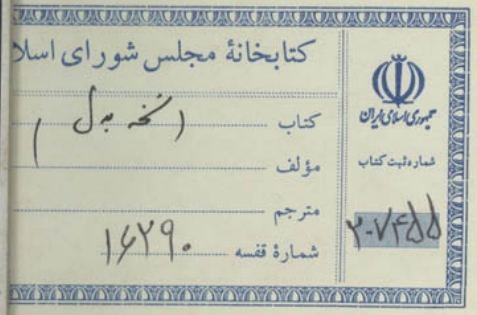 کتابخانهٔ مجلس شورای اسلا
کتاب (نسخه بدل)
مؤلف
مترجم
شمارهٔ قفسه ۱۶۲۹۰
جمهوری اسلامی ایران
شماره ثبت کتاب
۲۰۷۴۵۵